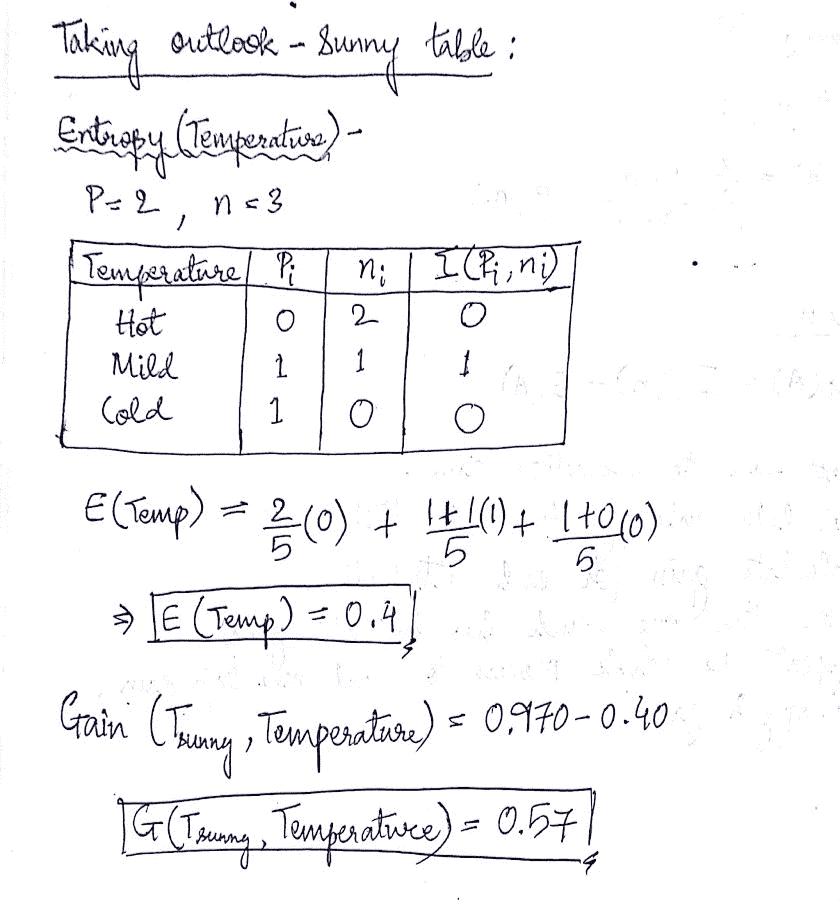 Taking outlook - Sunny table :
Entropy (Temperature) -
P = 2 , n = 3
Temperature Pi ni I (Pi, ni)
Hot 0 2 0
Mild 1 1 1
Cold 1 0 0
E (Temp) = 2/5 (0) + 1+1/5 (1) + 1+0/5 (0)
⇒ E (Temp) = 0.4
Gain (Tsunny , Temperature) = 0.970 - 0.40
G (Tsunny, Temperature) = 0.57